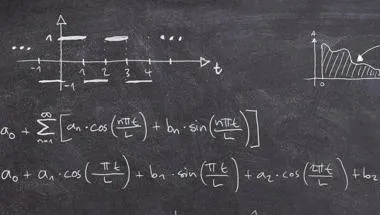 1
... ...
-1 1 2 3 4 t
-1
0
a₀ + ∑ₙ₌₁^∞ [aₙ · cos(nπt/L) + bₙ · sin(nπt/L)]
a₀ + a₁ · cos(πt/L) + b₁ · sin(πt/L) + a₂ · cos(2πt/L) + b₂